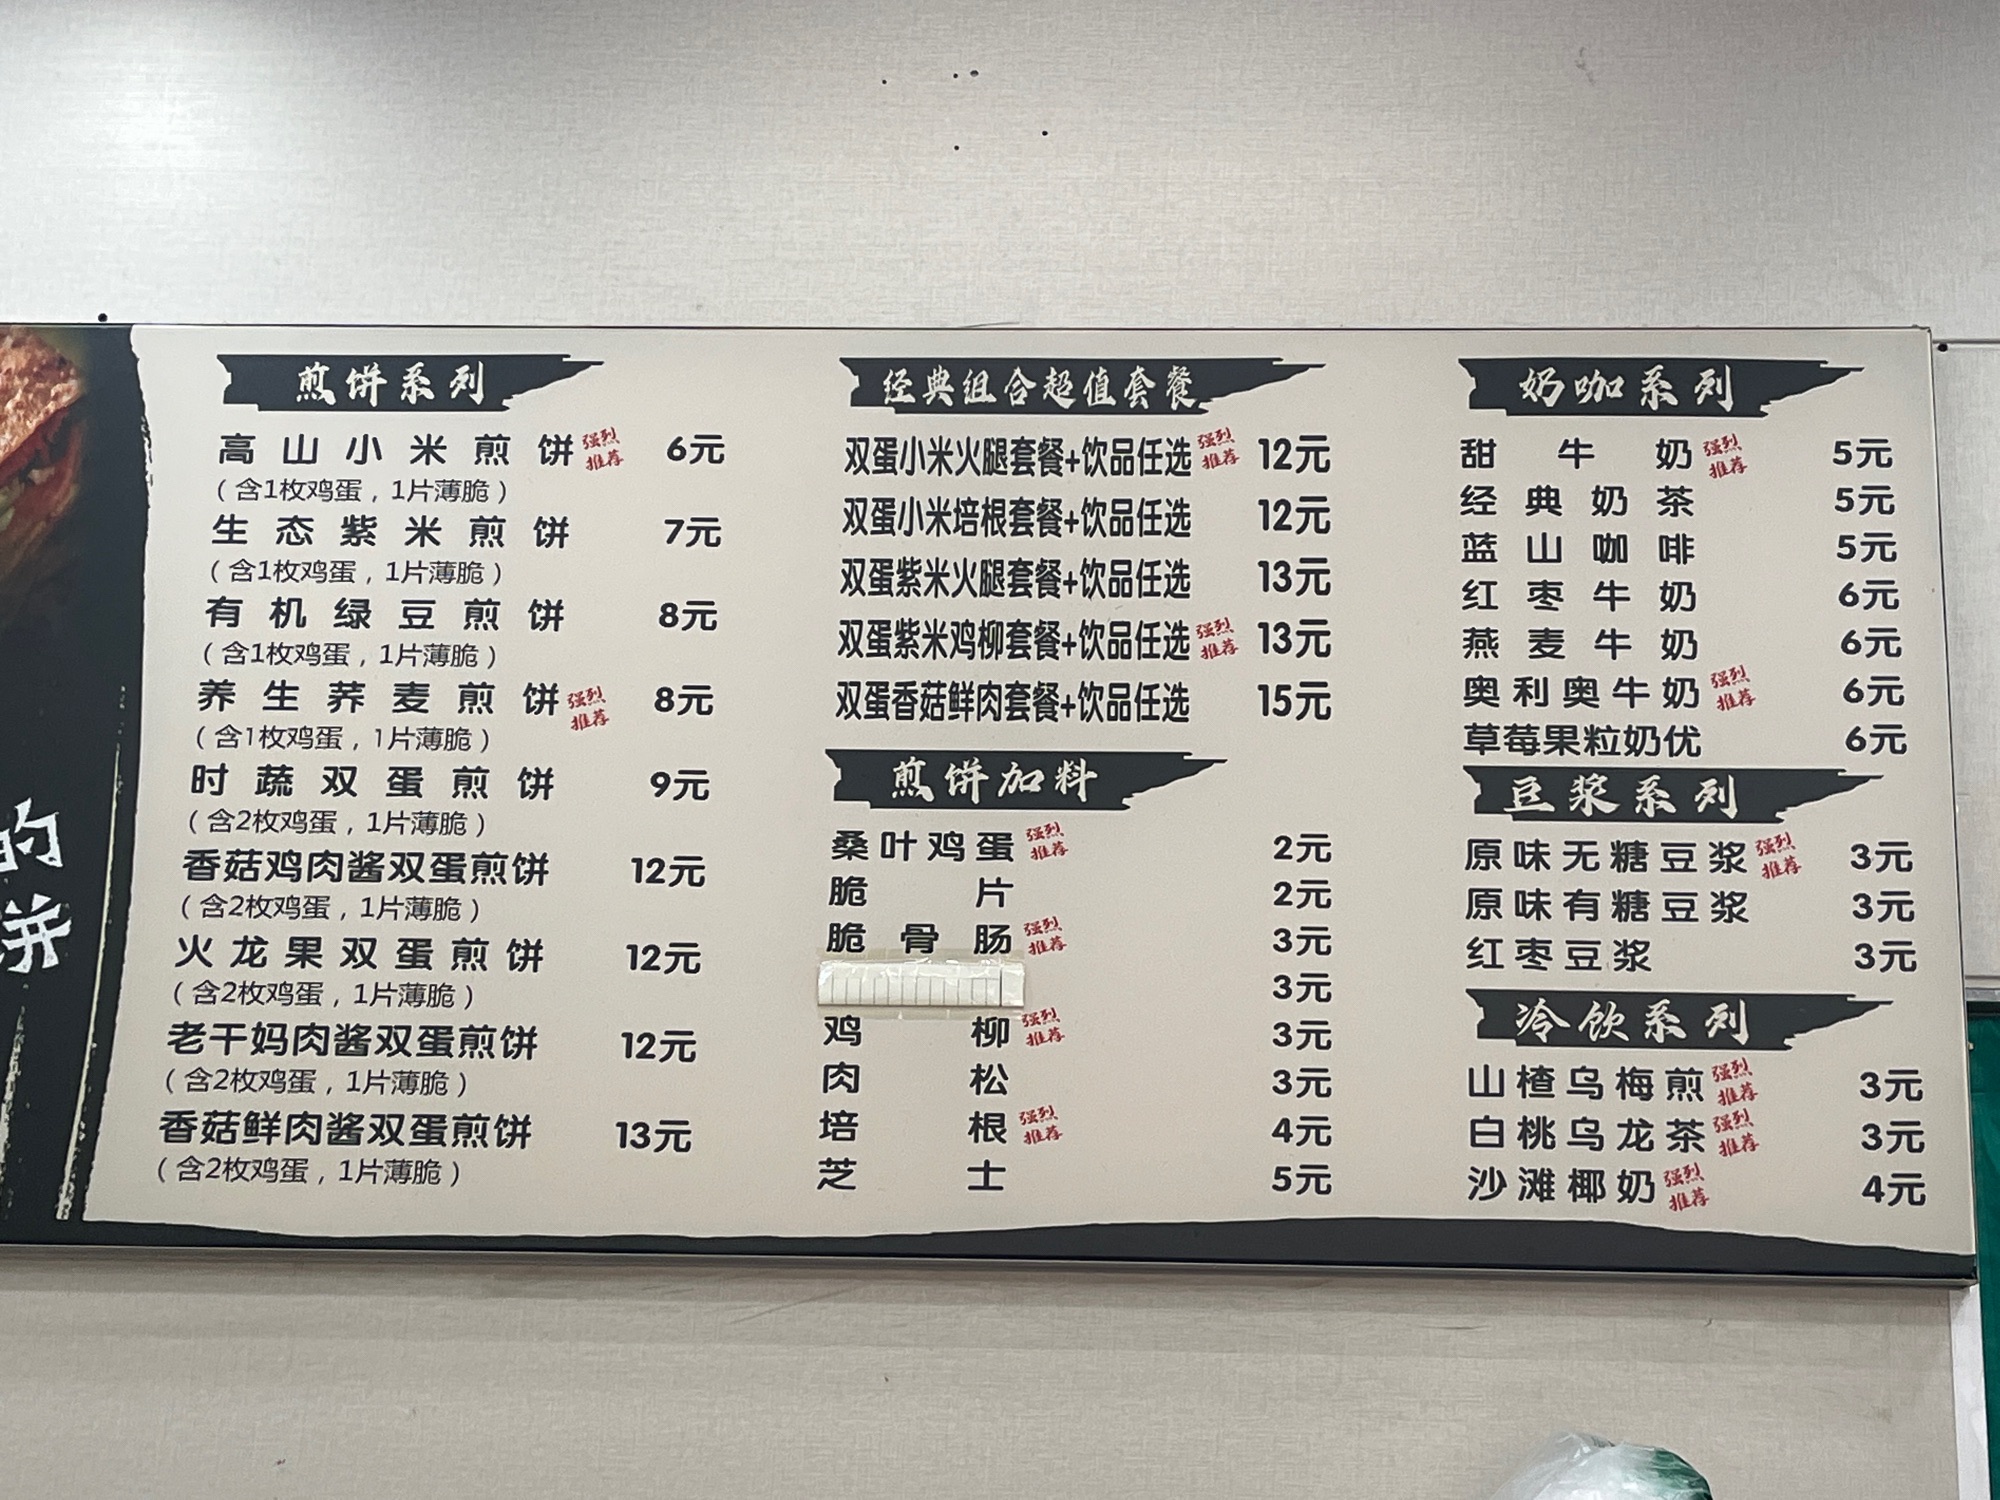 的
饼
煎饼系列
高山小米煎饼 强烈推荐 6元
（含1枚鸡蛋，1片薄脆）
生态紫米煎饼 7元
（含1枚鸡蛋，1片薄脆）
有机绿豆煎饼 8元
（含1枚鸡蛋，1片薄脆）
养生荞麦煎饼 强烈推荐 8元
（含1枚鸡蛋，1片薄脆）
时蔬双蛋煎饼 9元
（含2枚鸡蛋，1片薄脆）
香菇鸡肉酱双蛋煎饼 12元
（含2枚鸡蛋，1片薄脆）
火龙果双蛋煎饼 12元
（含2枚鸡蛋，1片薄脆）
老干妈肉酱双蛋煎饼 12元
（含2枚鸡蛋，1片薄脆）
香菇鲜肉酱双蛋煎饼 13元
（含2枚鸡蛋，1片薄脆）
经典组合超值套餐
双蛋小米火腿套餐+饮品任选 强烈推荐 12元
双蛋小米培根套餐+饮品任选 12元
双蛋紫米火腿套餐+饮品任选 13元
双蛋紫米鸡柳套餐+饮品任选 强烈推荐 13元
双蛋香菇鲜肉套餐+饮品任选 15元
煎饼加料
桑叶鸡蛋 强烈推荐 2元
脆片 2元
脆骨肠 强烈推荐 3元
3元
鸡柳 强烈推荐 3元
肉松 3元
培根 强烈推荐 4元
芝士 5元
奶咖系列
甜牛奶 强烈推荐 5元
经典奶茶 5元
蓝山咖啡 5元
红枣牛奶 6元
燕麦牛奶 6元
奥利奥牛奶 强烈推荐 6元
草莓果粒奶优 6元
豆浆系列
原味无糖豆浆 强烈推荐 3元
原味有糖豆浆 3元
红枣豆浆 3元
冷饮系列
山楂乌梅煎 强烈推荐 3元
白桃乌龙茶 强烈推荐 3元
沙滩椰奶 强烈推荐 4元